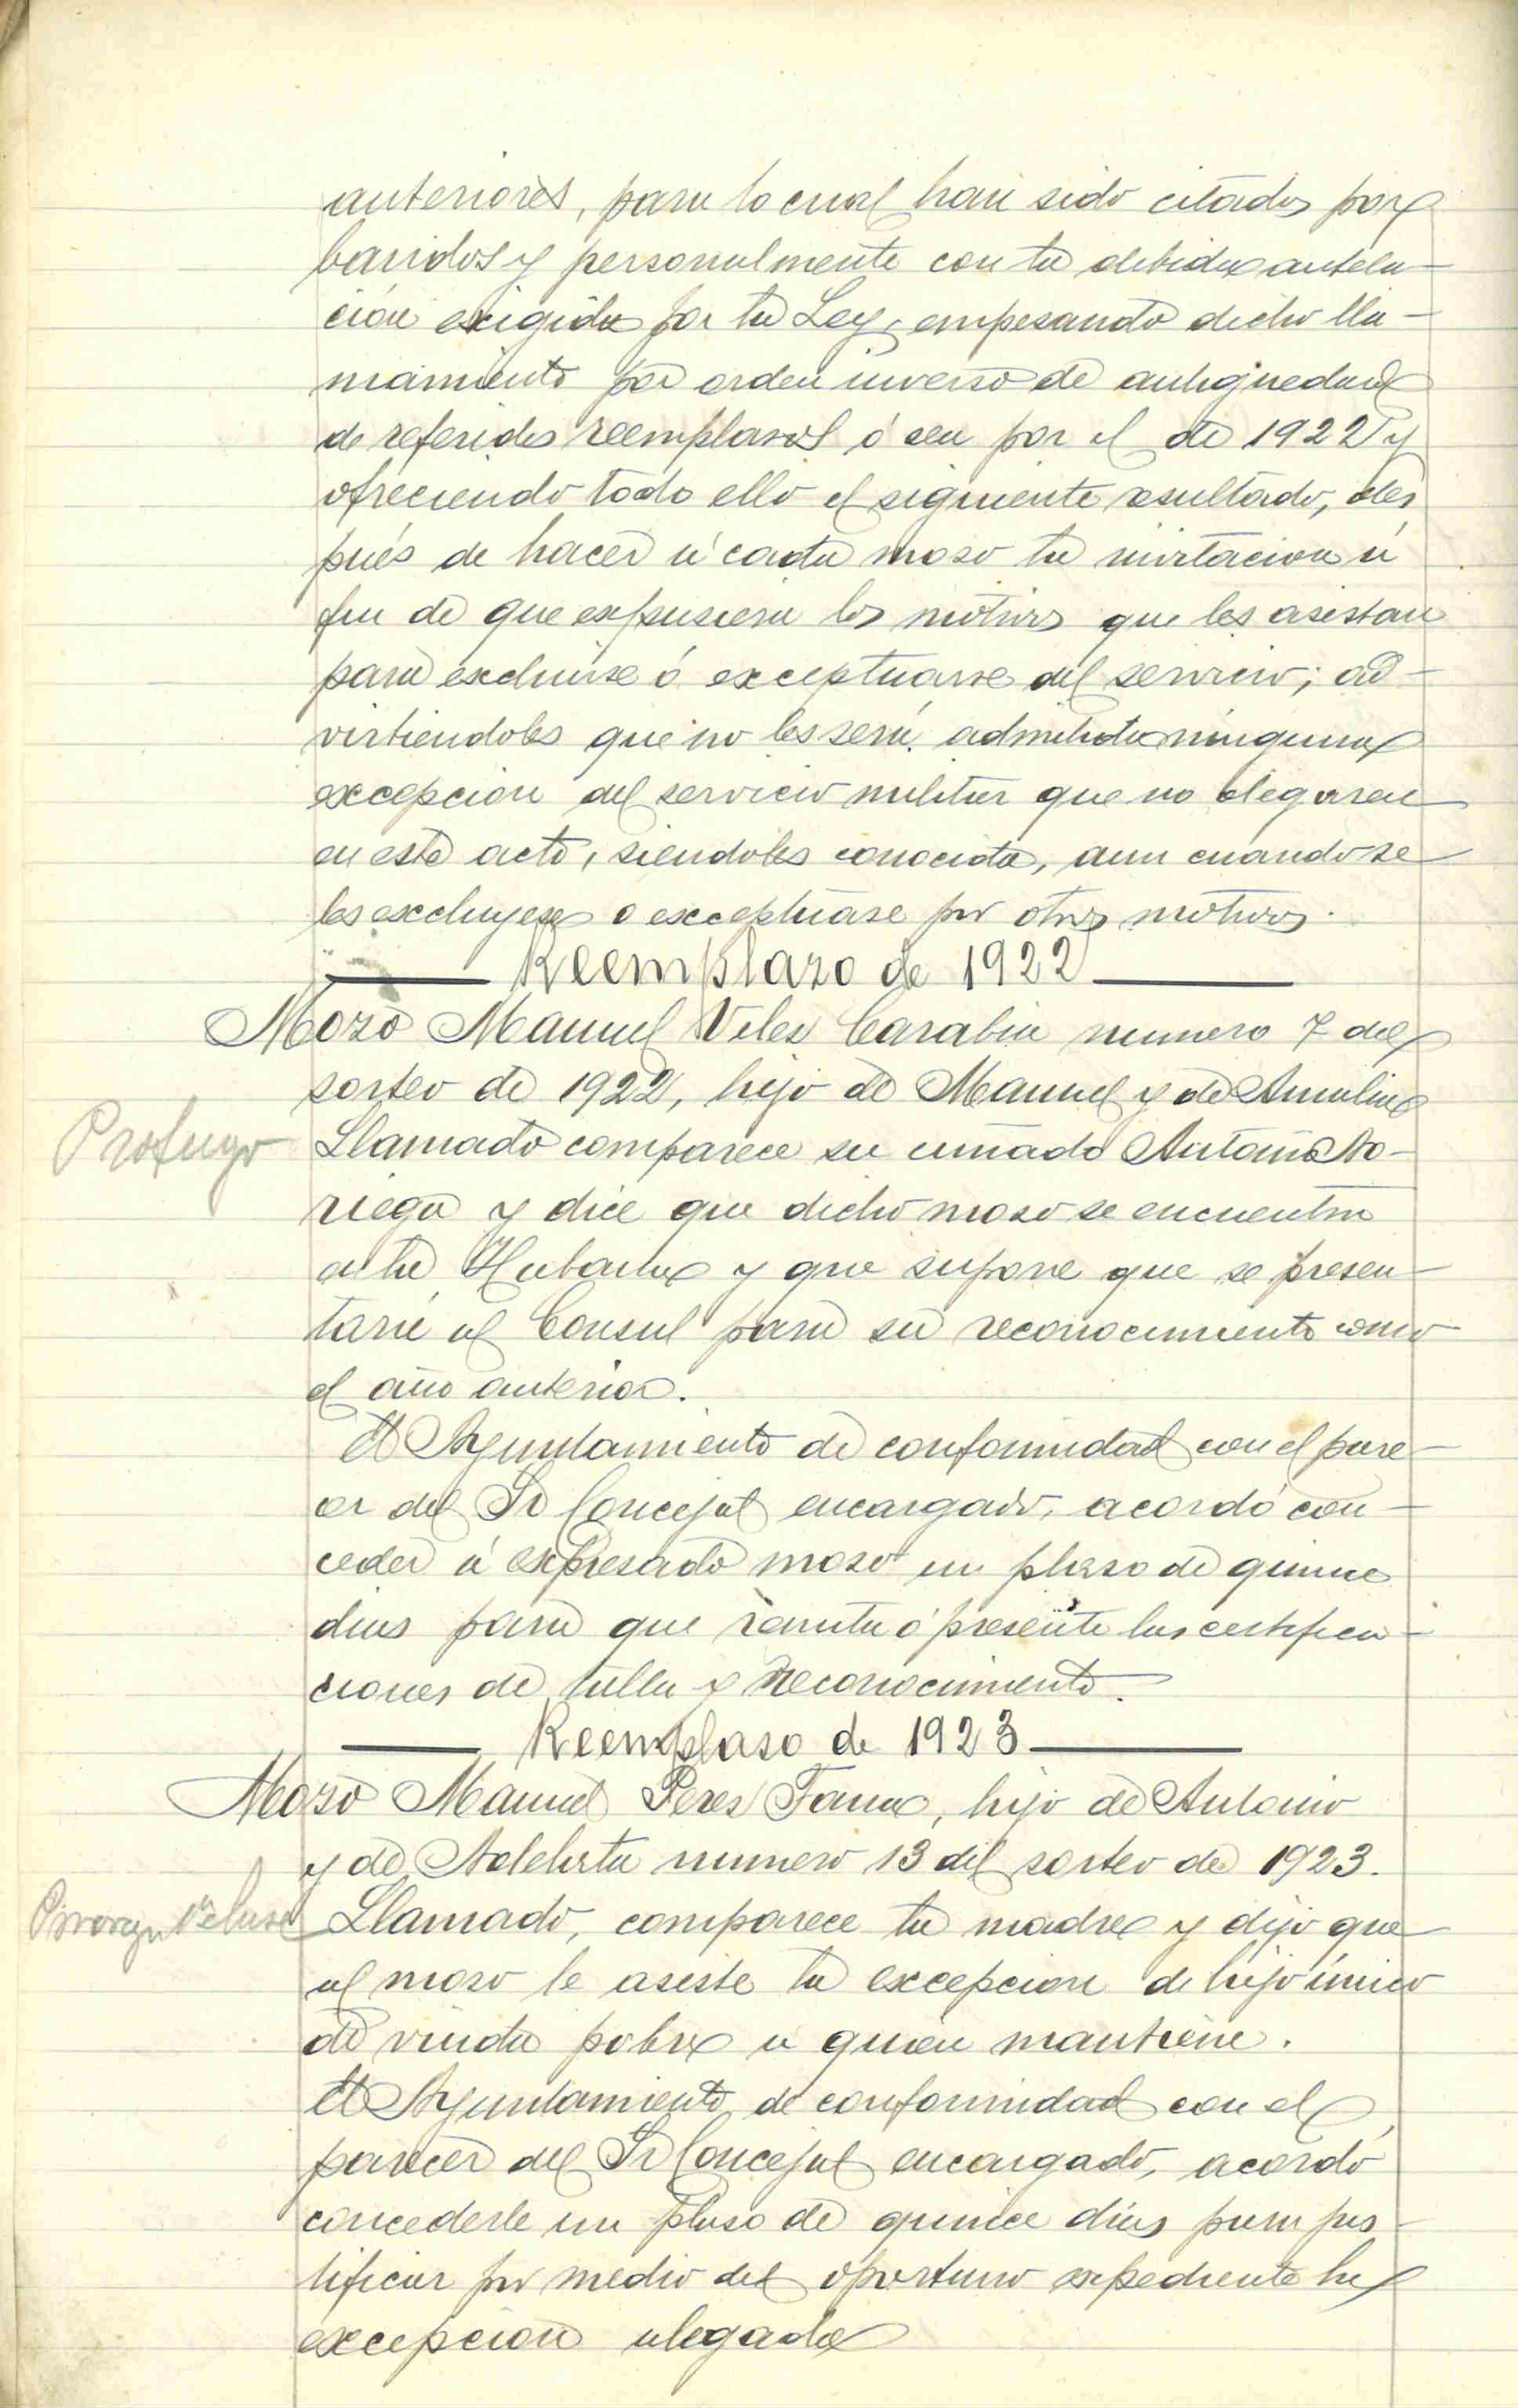 anteriores, para lo cual han sido citados por
bandos y personalmente con la debida antela-
ción exigida por la Ley, empesando dicho lla-
mamiento por orden inverso de antiguedad
de referidos reemplasos ó sea por el de 1922 y
ofreciendo todo ello el siguiente resultado, des
pués de hacer á cada moso la invitacion á
fin de que expusiera los motivos que les asistan
para excluirse ó exceptuarse del servicio; ad-
virtiendoles que no les será admitida ninguna
excepcion del servicio militar que no alegaren
en este acto, siendoles conocida, aun cuando se
les excluyese o exceptuase por otros motivos.
Reemplazo de 1922
Mozo Manuel Veles Carabia numero 7 del
sorteo de 1922, hijo de Manuel y de Amalia
Profugo
Llamado comparece su cuñado Antonio No-
riega y dice que dicho moso se encuentra
en la Habana y que supone que se presen-
tará al Consul para su reconocimiento como
el año anterior.
El Ayuntamiento de conformidad con el pare-
cer del Sr Concejal encargado, acordó con-
ceder á expresado moso un plaso de quince
dias para que remita ó presente las certifica-
ciones de talla y reconocimiento.
Reemplaso de 1923
Moso Manuel Peres, hijo de Antonio
y de numero 13 del sorteo de 1923.
Prorroga 1ª clase
Llamado, comparece la madre y dijo que
al moso le asiste la excepcion de hijo único
de viuda pobre a quien mantiene.
El Ayuntamiento de conformidad con el
parecer del Sr Concejal encargado, acordó
concederle un plaso de quince dias para jus-
tificar por medio del oportuno expediente la
excepcion alegada